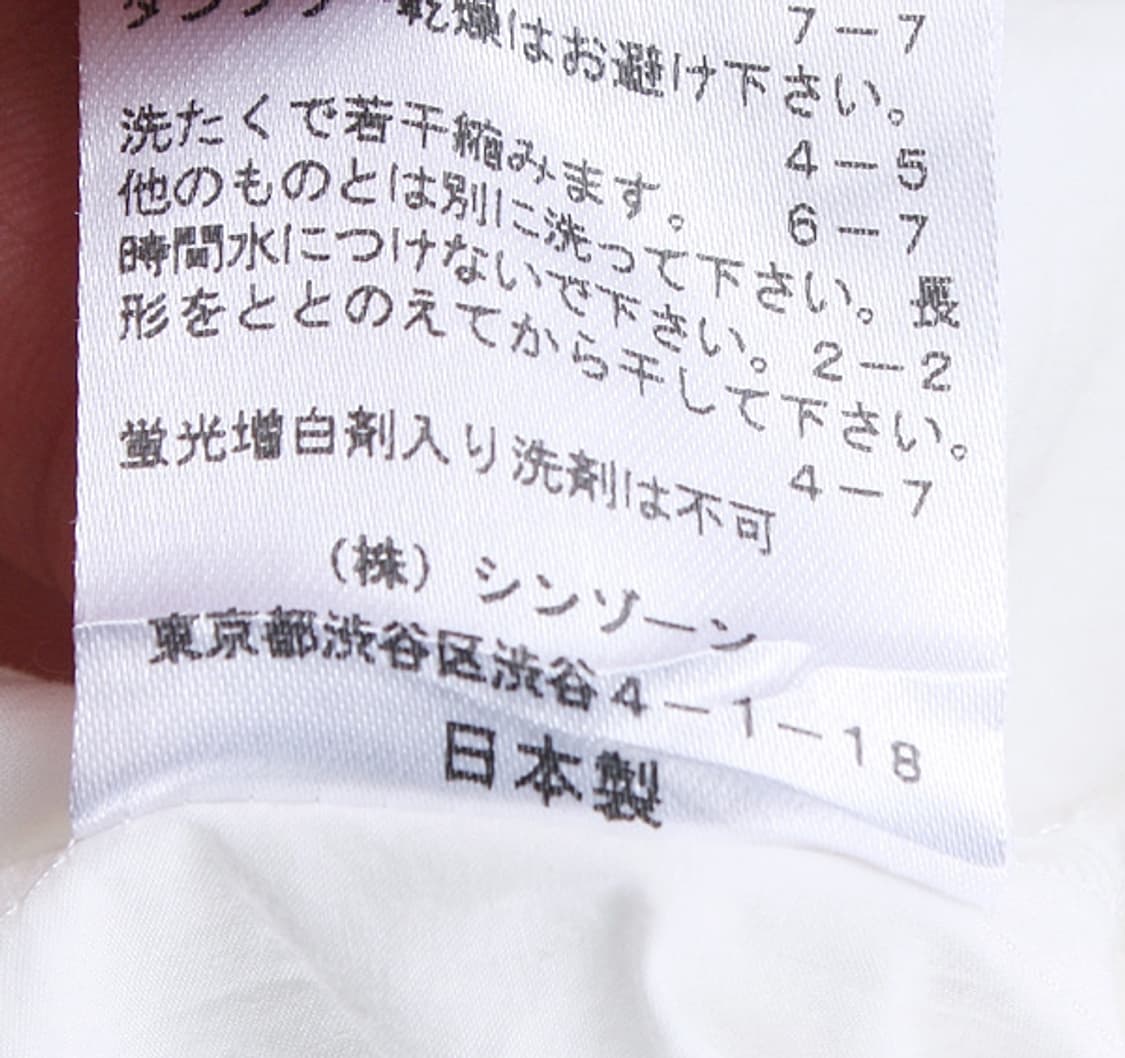 7－7
タンブラー乾燥はお避け下さい。
4－5
洗たくで若干縮みます。
6－7
他のものとは別に洗って下さい。長
時間水につけないで下さい。2－2
形をととのえてから干して下さい。
4－7
蛍光増白剤入り洗剤は不可
（株）シンゾーン
東京都渋谷区渋谷4－1－18
日本製